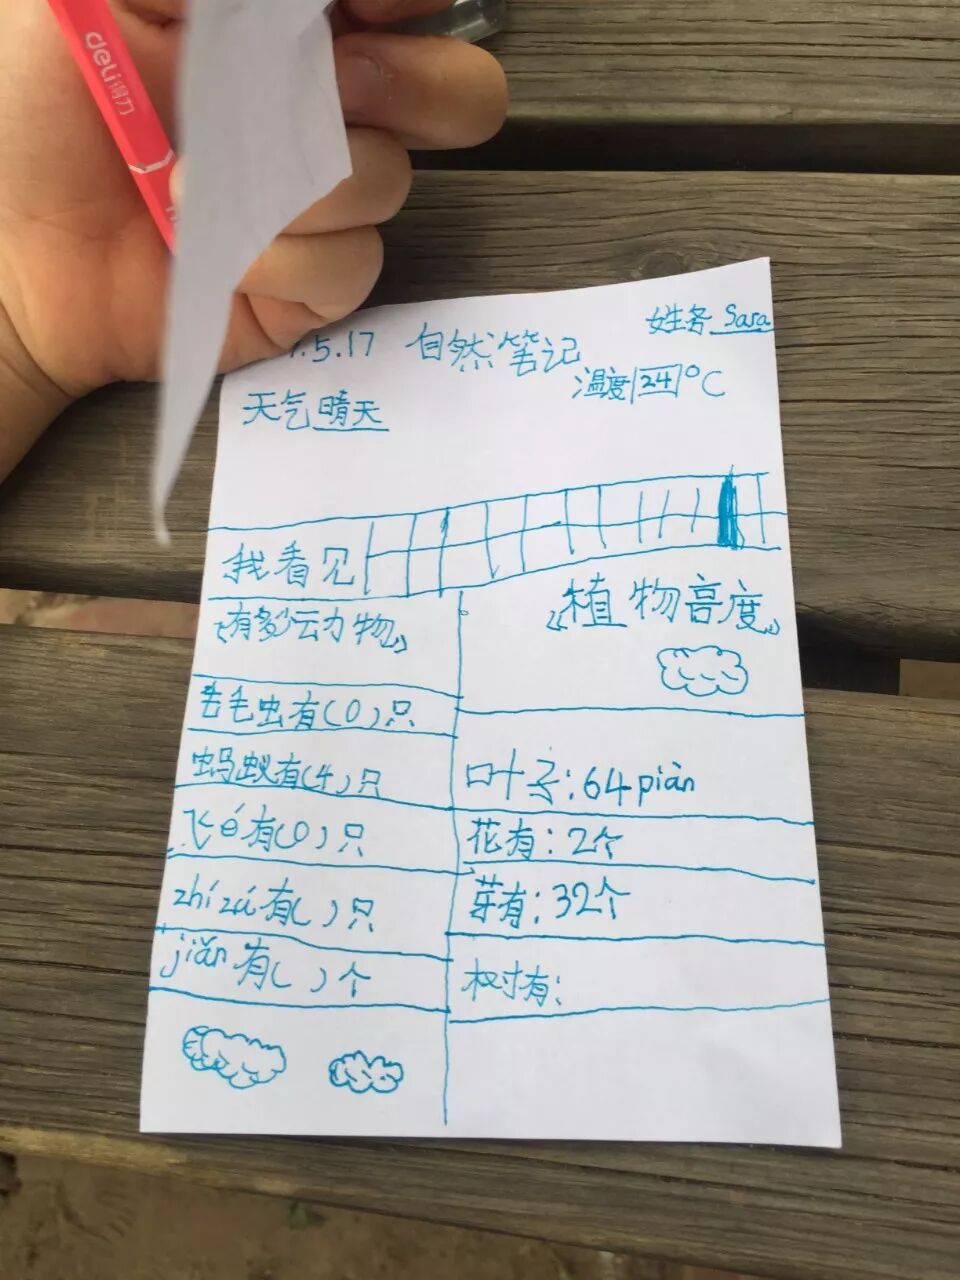 deli得力
.5.17 自然笔记
姓名 Sara
温度 24 °C
天气 晴天
我看见
有多少云力物
植物高度
毛毛虫有(0)只
蚂蚁有(4)只
飞é有(0)只
zhī zú有( )只
jiǎn有( )个
叶子:64piàn
花有:2个
芽有:32个
树有: